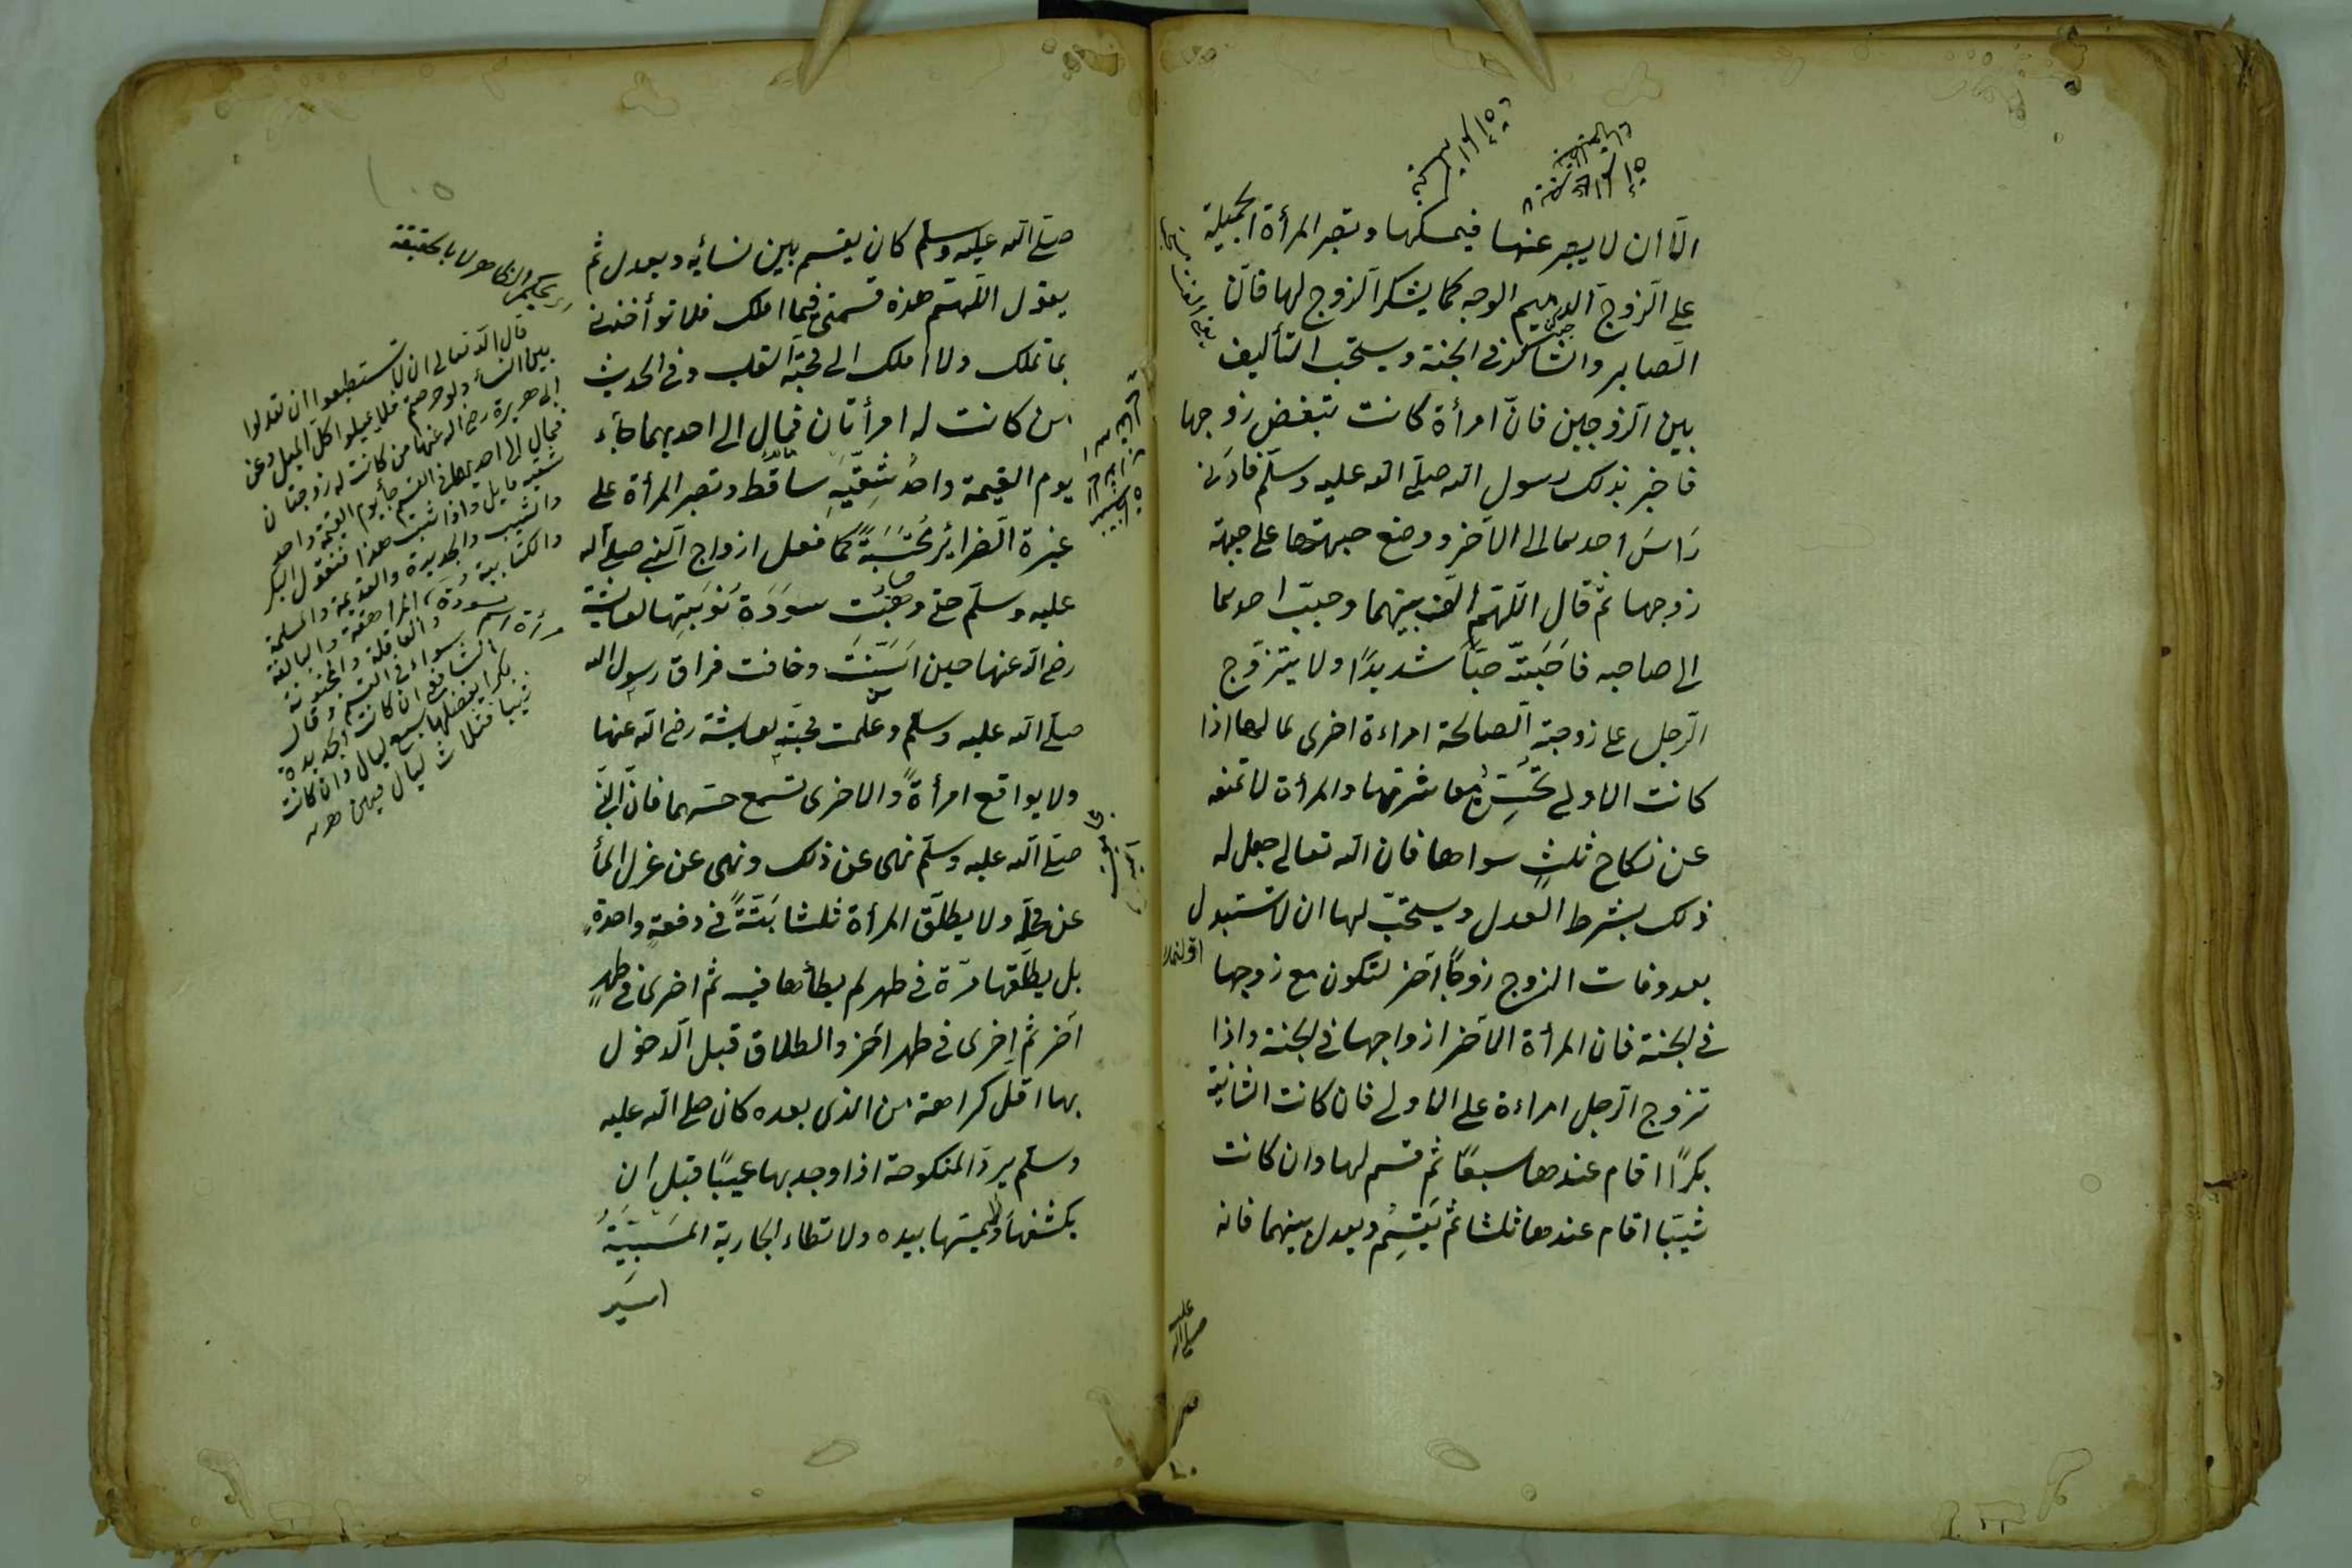 الا ان لا يصبر عنها فيمسكها وتصبر المرأة الجميلة
على الزوج الدميم الوجه كما يشكر الزوج لها فان
الصابر والشاكر في الجنة ويستحب التأليف
بين الزوجين فان امرأة كانت تبغض زوجها
فاخبر بذلك رسول الله صلى الله عليه وسلم فادنى
رأس احدهما الى الآخر ووضع جبهتها على جبهة
زوجها ثم قال اللهم الف بينهما وحبب احدهما
الى صاحبه فاحبته حبا شديدا ولا يتزوج
الرجل على زوجته الصالحة امراءة اخرى لمالها اذا
كانت الاولى تحسن معاشرتها والمرأة لا تمنعه
عن نكاح ثلث سواها فان الله تعالى جعل له
ذلك بشرط العدل ويستحب لها ان لا تستبدل
بعد وفات الزوج زوجا آخر لتكون مع زوجها
في الجنة فان المرأة لآخر ازواجها في الجنة واذا
تزوج الرجل امراءة على الاولى فان كانت الثانية
بكرا اقام عندها سبعا ثم قسم لها وان كانت
ثيبا اقام عندها ثلثا ثم يقسم ويعدل بينهما فانه
صلى الله عليه
صلى الله عليه وسلم كان يقسم بين نسائه ويعدل ثم
يقول اللهم هذه قسمتي فيما املك فلا تؤاخذني
بما تملك ولا املك الى محبة القلب وفي الحديث
من كانت له امرأتان فمال الى احديهما جاء
يوم القيمة واحد شقيه ساقط وتصبر المرأة على
غيرة الضرائر محتسبة كما فعل ازواج النبي صلى الله
عليه وسلم حتى وهبت سودة نوبتها لعائشة
رضي الله عنها حين اسنت وخافت فراق رسول الله
صلى الله عليه وسلم وعلمت محبته بعايشة رضي الله عنها
ولا يواقع امرأة والاخرى تسمع حسهما فان النبي
صلى الله عليه وسلم نهى عن ذلك ونهى عن عزل الماء
عن محله ولا يطلق المرأة ثلثا بتة في دفعة واحدة
بل يطلقها مرة في طهر لم يطأها فيه ثم اخرى في طهر
آخر ثم اخرى في طهر آخر والطلاق قبل الدخول
بها اقل كراهة من الذي بعده كان صلى الله عليه
وسلم يرد المنكوحة اذا وجد بها عيبا قبل ان
يكشفها ويمسها بيده ولا تطاء الجارية المسبية
قال الله تعالى ان لا تستطيعوا ان تعدلوا
بين النساء ولو حرصتم فلا تميلوا كل الميل وعن
ابي هريرة رضي الله عنها من كانت له زوجتان
فمال الى احديهما في القسم جاء يوم القيمة واحد
شقيه مايل واذا ثبت هذا فنقول البكر
والثيب والجديدة والقديمة والمسلمة
والكتابية والمراهقة والبالغة
والعاقلة والمجنونة
سواء في القسم وقال
الشافعي ان كانت الجديدة
بكرا يفضلها بسبع ليال وان كانت
ثيبا فثلاث ليال